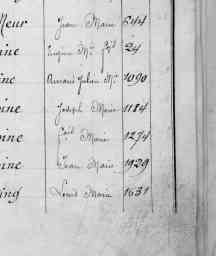 Meur Jean Marie 244
ine Eugène Me 24
ine Armand Julien Me 1090
ine Joseph Marie 1184
ine Marie 1274
ine Jean Marie 1929
ing Louis Marie 1631